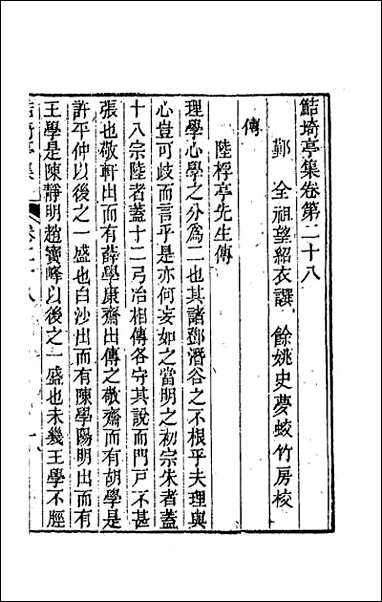 鮚埼亭集卷第二十八
鄞　全祖望紹衣譔　餘姚史夢蛟竹房校
傳
陸桴亭先生傳
理學心學之分爲二也其諸鄧潛谷之不根乎夫理與
心豈可歧而言乎是亦何妄如之當明之初宗朱者蓋
十八宗陸者蓋十二弓冶相傳各守其說而門戸不甚
張也敬軒出而有薛學康齋出傳之敬齋而有胡學是
許平仲以後之一盛也白沙出而有陳學陽明出而有
王學是陳靜明趙寶峰以後之一盛也未幾王學不脛